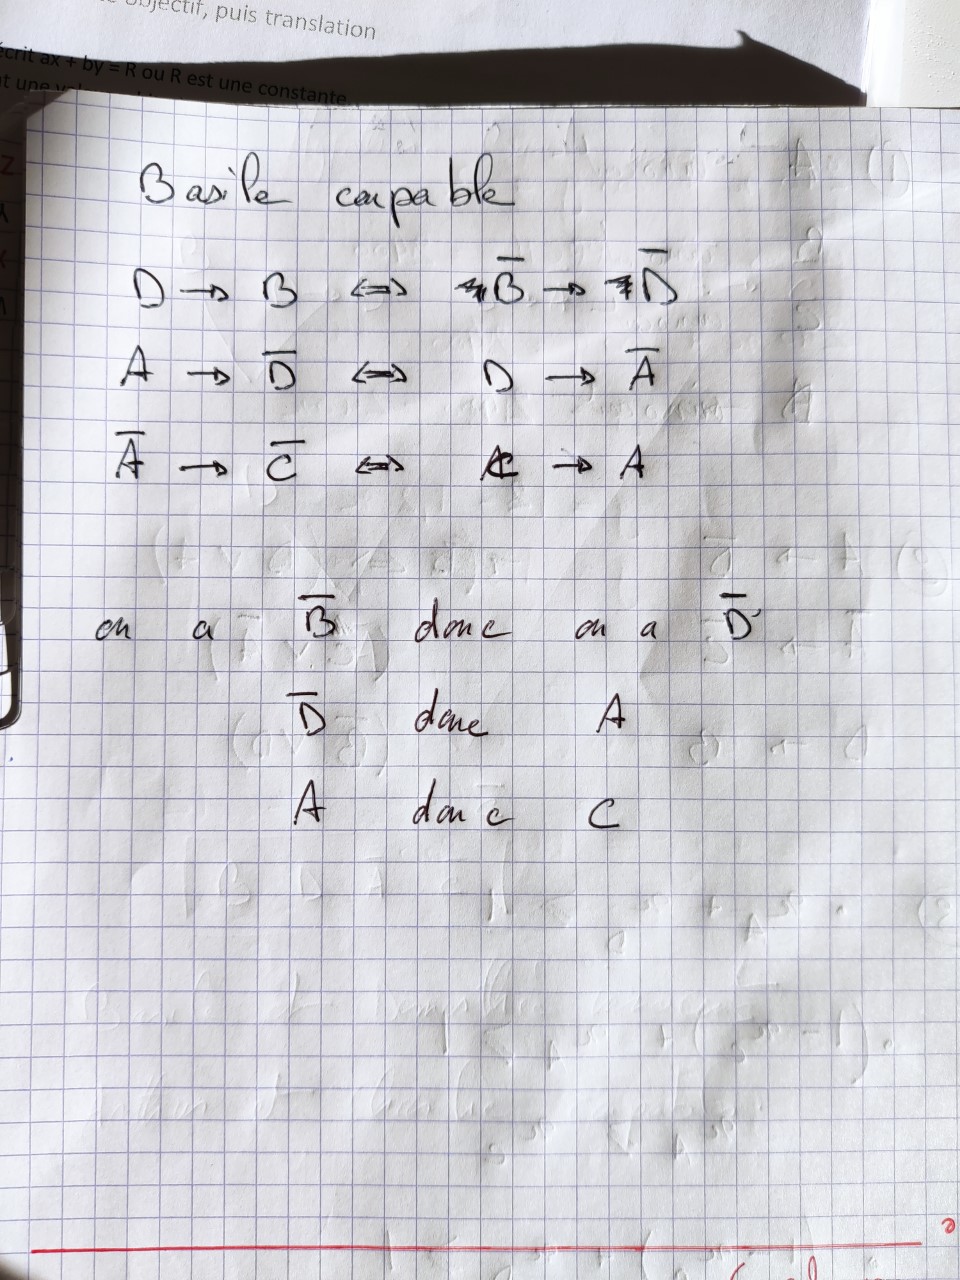 objectif, puis translation
écrit ax + by = R ou R est une constante
Basile coupable
D → B ⇔ B̅ → D̅
A → D̅ ⇔ D → A̅
A̅ → C̅ ⇔ C → A
on a B̅ donc on a D̅
D̅ donc A
A donc C